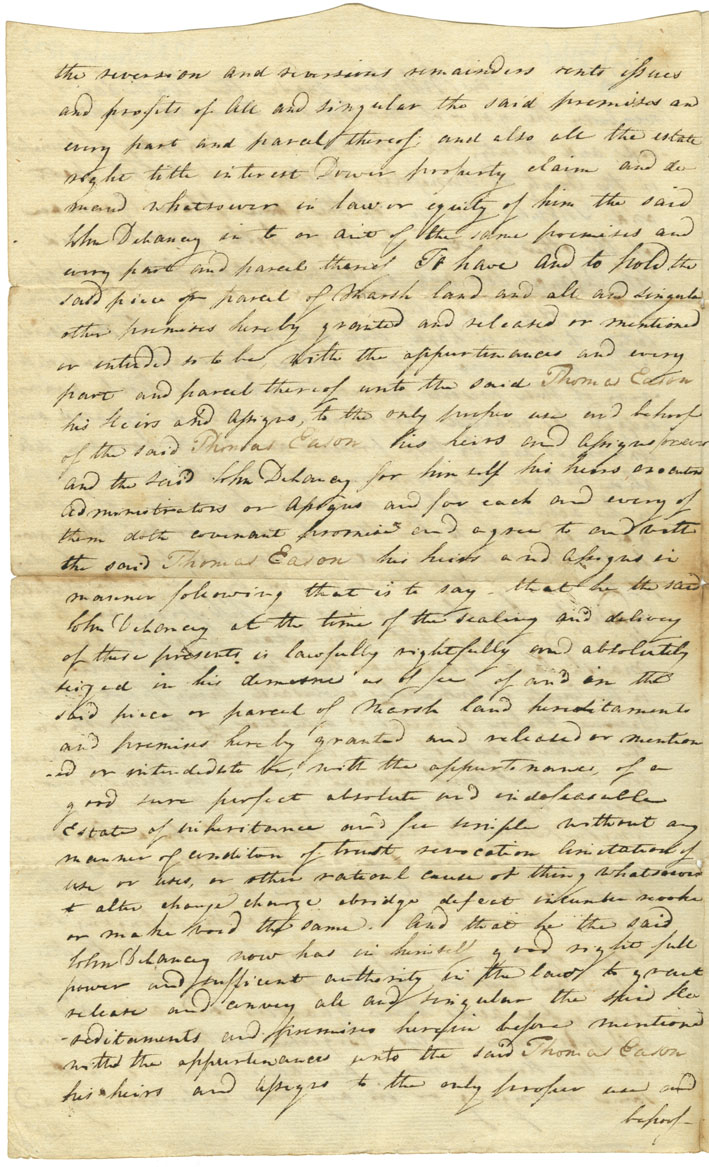 the reversion and reversions remainders rents issues
and profits of all and singular the said premises an
every part and parcel thereof and also all the estate
right title interest Dower property claim and de
mand whatsoever in law or equity of him the said
John Delancey in to or out of the same premises and
every part and parcel thereof To have and to hold the
said piece or parcel of Marsh land and all and singula
other premises hereby granted and released or mentioned
or intended so to be with the appurtenances and every
part and parcel thereof unto the said Thomas Eason
his Heirs and Assigns, to the only proper use and behoof
of the said Thomas Eason his heirs and Assigns forever
and the said John Delancey for himself his heirs executors
administrators or Assigns and for each and every of
them doth covenant promise and agree to and with
the said Thomas Eason his heirs and assigns in
manner following that is to say that he the said
John Delancey at the time of the sealing and delivery
of these presents is lawfully rightfully and absolutely
seized in his demesne as of fee of and in the
said piece or parcel of Marsh land hereditaments
and premises hereby granted and released or mention
-ed or intended to be, with the appurtenances, of a
good sure perfect absolute and indefeasable
Estate of inheritance and fee simple without any
manner of condition of trust revocation limitation of
use or uses, or other rational cause or thing whatsoever
t alter change charge abridge defect incumber revoke
or make void the same. And that he the said
John Delancey now has in himself good right full
power and sufficent authority in the law to grant
release and convey all and singular the said He
-reditaments and premises herein before mentioned
with the appurtenances unto the said Thomas Eason
his heirs and assigns to the only proper use and
behoof-